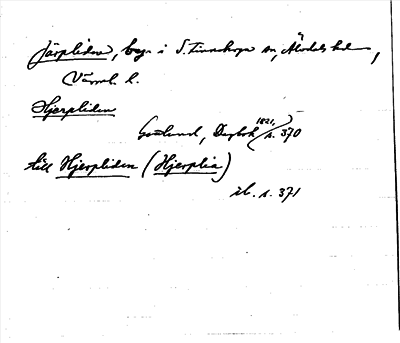 Järpliden, by i S. Finnskoga sn, Älvdals hd,
Värml. l.
Hjerpliden
Gottlund, Dagbok 1821, s. 370
till Hjerpliden (Hjerplia)
ib. s. 371